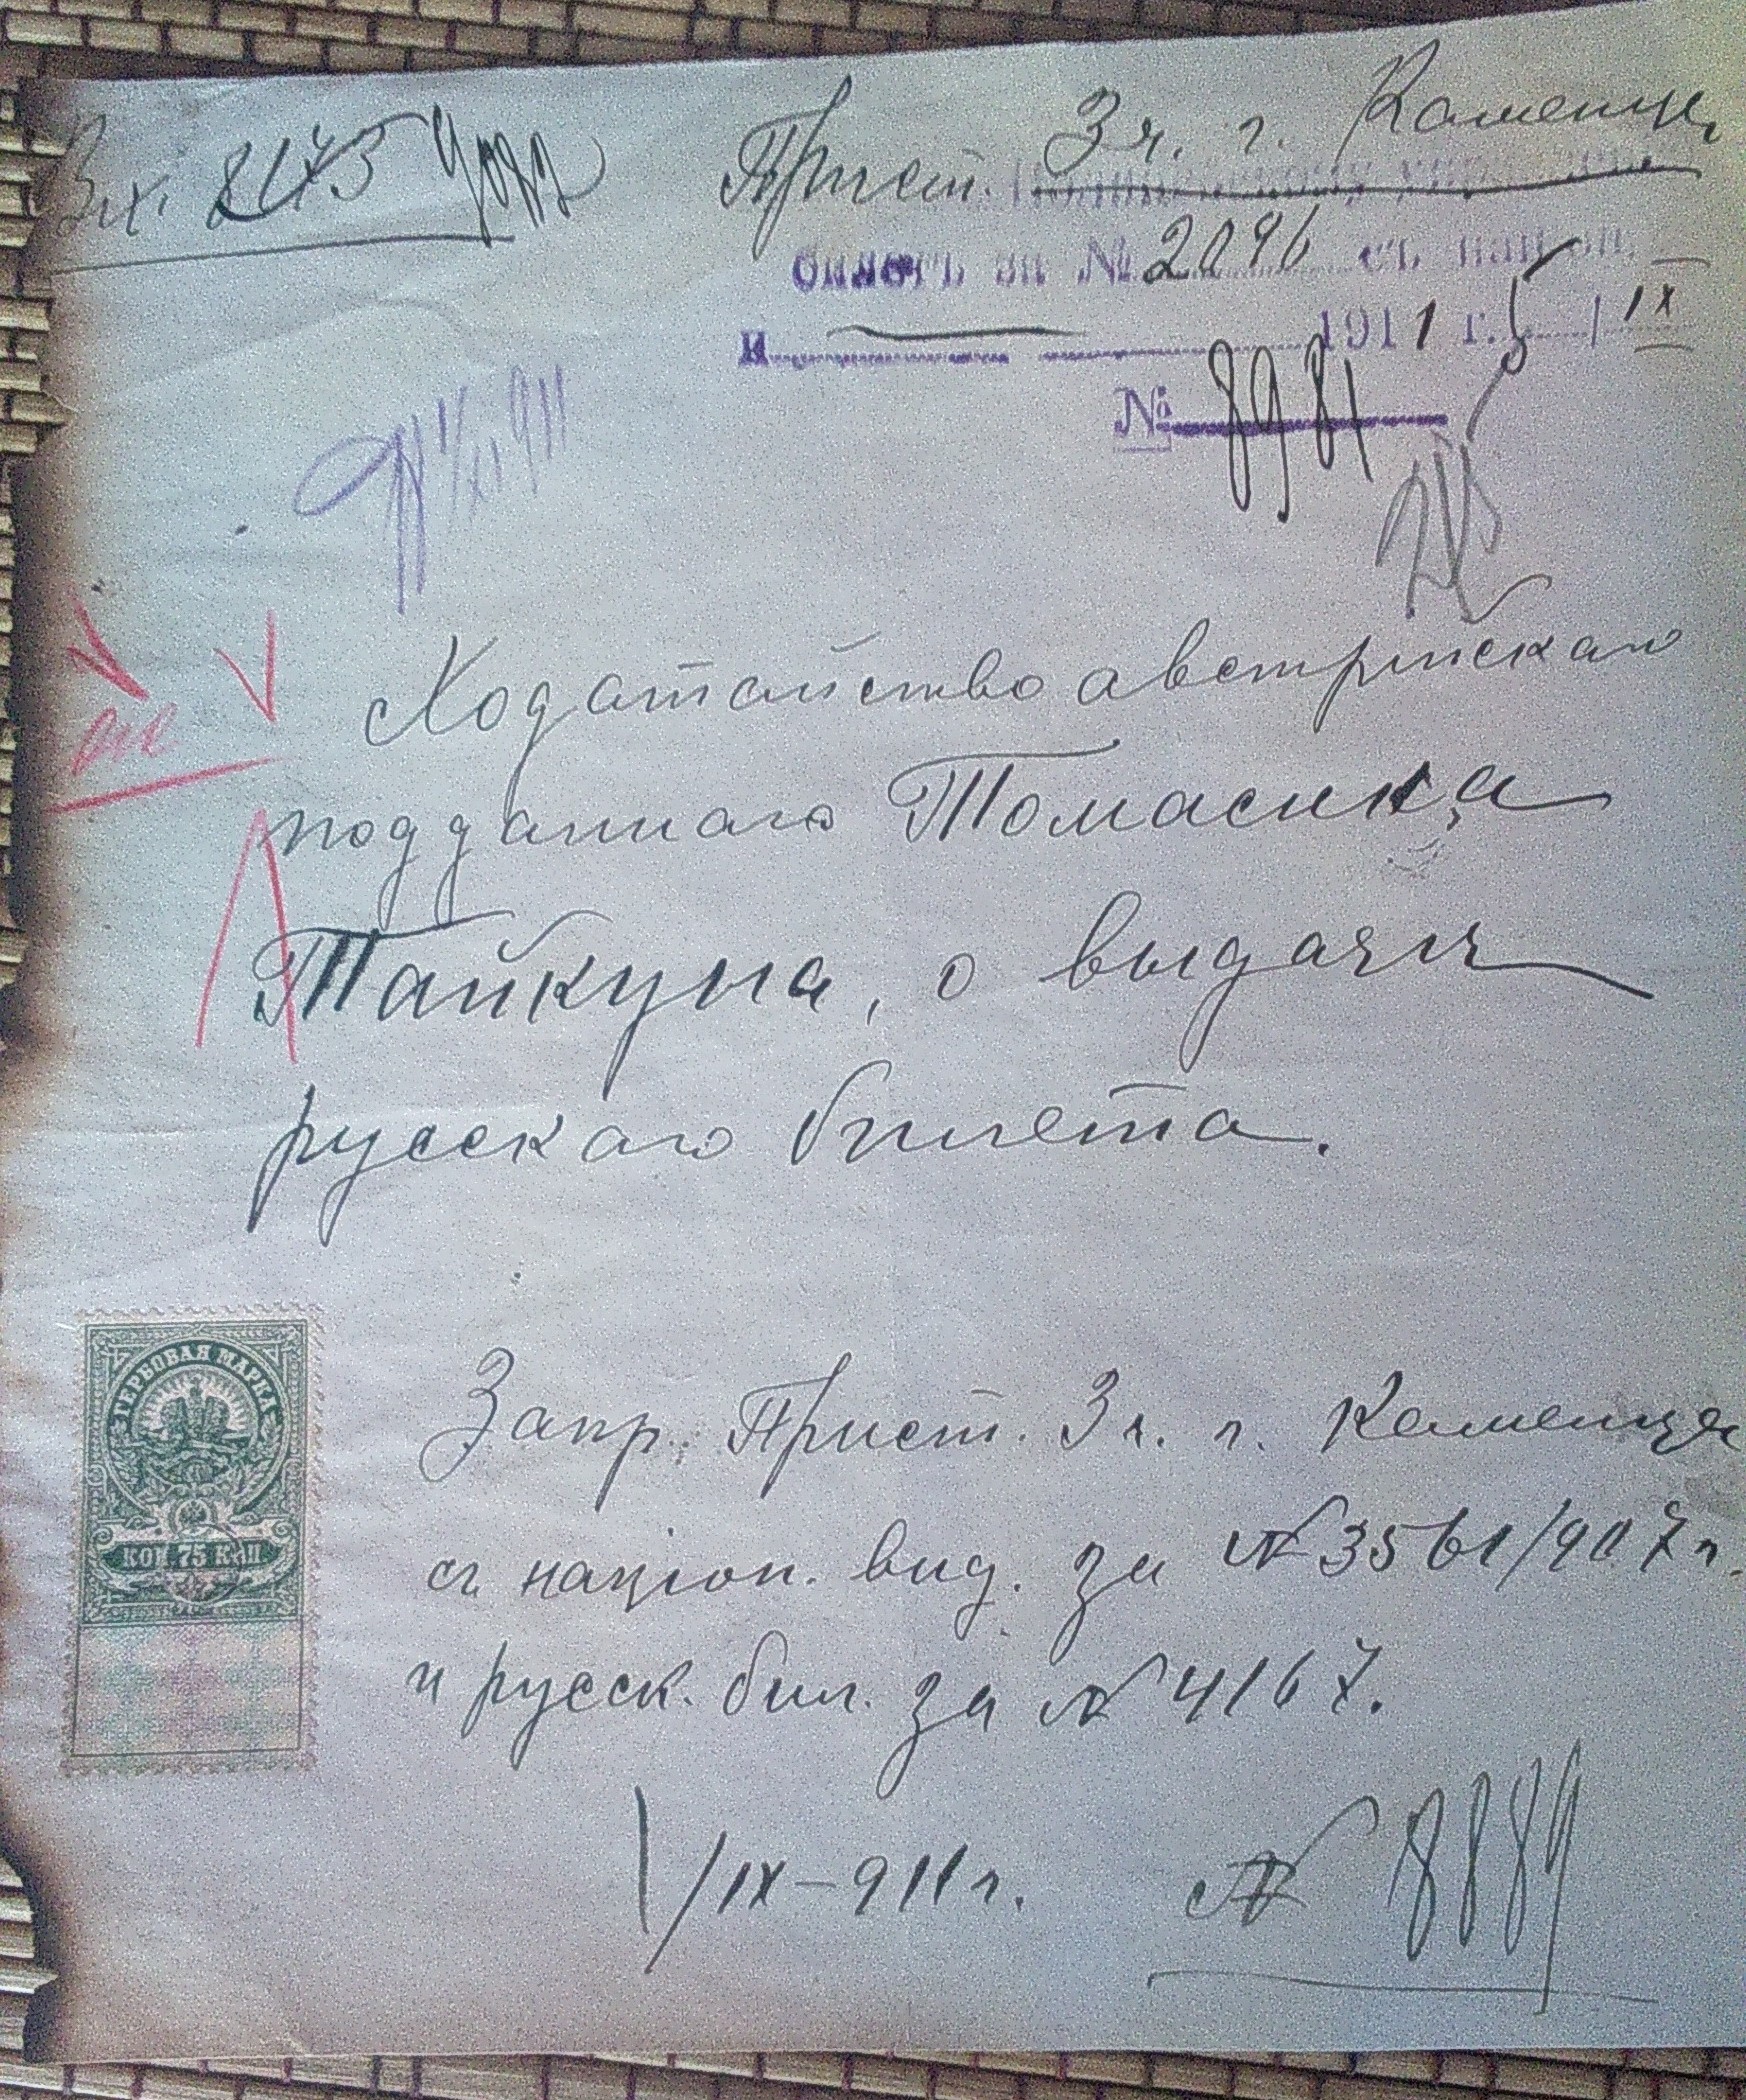 Вх. 8173
Прист. 3 ч. г. Каменца
билетъ за № 2096 съ націон.
и 1911 г. 5/IX
№ 8981
1/XI 911
Ходатайство австрійскаго
подданаго Томасика
Тайкуна, о выдачи
русскаго билета.
ГЕРБОВАЯ МАРКА
КОП 75 КОП
Запр. Прист. 3 ч. г. Каменца
съ націон. вид. за № 3561/907 г.
и русск. бил. за № 4167.
1/IX-911 г. № 8889